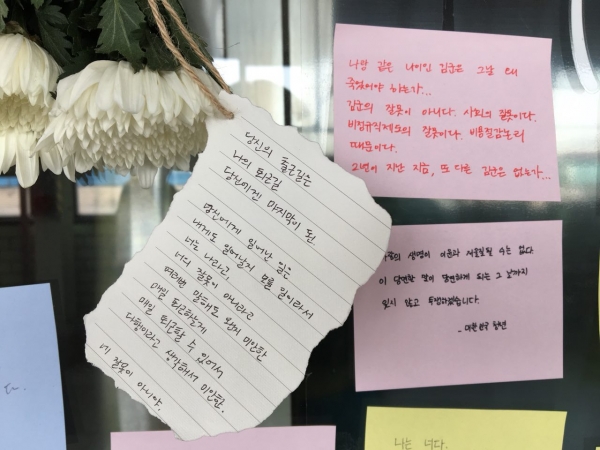 당신의 출근길은
나의 퇴근길
당신이겐 마지막이 된
당신에게 일어난 일은
내게도 일어날지 모를 일이라서
너는 나라고,
너의 잘못이 아니라고
여러번 말해도 왠지 미안한
매일 퇴근하는게
매일 퇴근할 수 있어서
다행이라고 생각해서 미안한.
네 잘못이 아니야.
나랑 같은 나이인 김군은 그날 왜
죽었어야 하는가...
김군의 잘못이 아니다. 사회의 잘못이다.
비정규직제도의 잘못이다. 비용절감논리
때문이다.
2년이 지난 지금, 또 다른 김군은 없는가...
생명이 이윤과 저울질될 수는 없다
이 당연한 말이 당연하게 되는 그 날까지
잊지 않고 투쟁하겠습니다.
- 대한민국 청년
나는 너다.